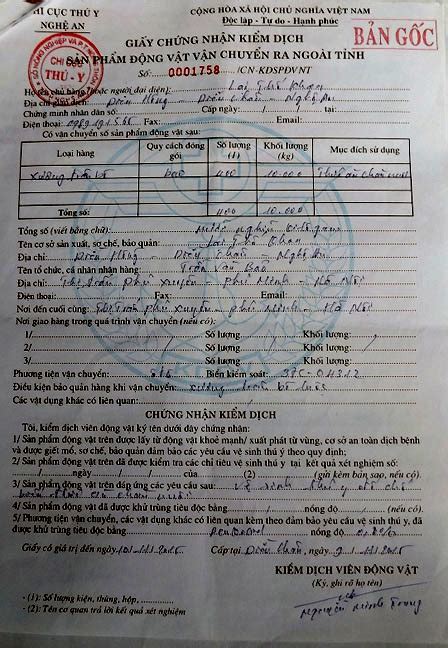 CHI CỤC THÚ Y
NGHỆ AN
CỘNG HÒA XÃ HỘI CHỦ NGHĨA VIỆT NAM
Độc lập - Tự do - Hạnh phúc
BẢN GỐC
GIẤY CHỨNG NHẬN KIỂM DỊCH
SẢN PHẨM ĐỘNG VẬT VẬN CHUYỂN RA NGOÀI TỈNH
CHI CỤC
THÚ - Y
Số: 0001758 /CN-KDSPĐVNT
Họ tên chủ hàng (hoặc người đại diện):
Địa chỉ giao dịch: Diễn Hồng - Diễn Châu - Nghệ An
Chứng minh nhân dân số: Cấp ngày / / tại:
Điện thoại: Fax: Email:
Có vận chuyển số sản phẩm động vật sau:
Loại hàng Quy cách đóng gói Số lượng (1) Khối lượng (kg) Mục đích sử dụng
Xương bao 400 10.000
Tổng số: 400 10.000
Tổng số (viết bằng chữ): Mười nghìn
Tên cơ sở sản xuất, sơ chế, bảo quản:
Địa chỉ: Diễn Hồng - Diễn Châu - Nghệ An
Tên tổ chức, cá nhân nhận hàng: Trần Văn
Địa chỉ: Thị Trấn Phú Xuyên - Phú Minh - Hà Nội
Điện thoại: Fax: Email:
Nơi đến cuối cùng: Thị Trấn Phú Xuyên - Phú Minh - Hà Nội
Nơi giao hàng trong quá trình vận chuyển (nếu có):
1/ Số lượng / Khối lượng:
2/ Số lượng / Khối lượng:
3/ Số lượng / Khối lượng:
Phương tiện vận chuyển: Biển kiểm soát: 37C-04312
Điều kiện bảo quản hàng khi vận chuyển: xương
Các vật dụng khác có liên quan:
CHỨNG NHẬN KIỂM DỊCH
Tôi, kiểm dịch viên động vật ký tên dưới đây chứng nhận:
1/ Sản phẩm động vật trên được lấy từ động vật khoẻ mạnh/ xuất phát từ vùng, cơ sở an toàn dịch bệnh
và được giết mổ, sơ chế, bảo quản đảm bảo các yêu cầu vệ sinh thú y theo quy định;
2/ Sản phẩm động vật trên đã được kiểm tra các chỉ tiêu vệ sinh thú y tại kết quả xét nghiệm số:
ngày / / của (2) (gửi kèm bản sao, nếu có).
3/ Sản phẩm động vật trên đáp ứng các yêu cầu sau: vệ sinh thú y
4/ Sản phẩm vật đã được khử trùng tiêu độc bằng / nồng độ / (nếu có).
5/ Phương tiện vận chuyển, các vật dụng khác có liên quan kèm theo đảm bảo yêu cầu vệ sinh thú y, đã
được khử trùng tiêu độc bằng nồng độ
Giấy có giá trị đến ngày Cấp tại Diễn Châu, ngày
KIỂM DỊCH VIÊN ĐỘNG VẬT
(Ký, ghi rõ họ tên)
- (1): Số lượng kiện, thùng, hộp,
- (2): Tên cơ quan trả lời kết quả xét nghiệm
Nguyễn Minh